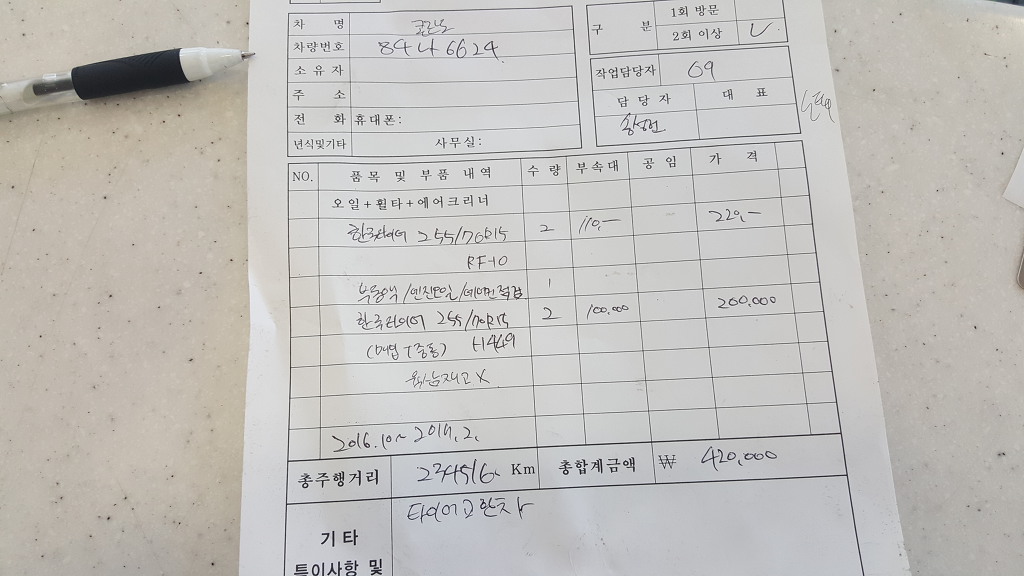 차 명
차량번호 84너6624
소유자
주 소
전 화 휴대폰:
년식및기타 사무실:
구 분 1회 방문
2회 이상 V
작업담당자 09
담 당 자 대 표
NO. 품목 및 부품 내역 수 량 부속대 공 임 가 격
오일+휠타+에어크리너
한국타이어 255/70R15 2 110,- 220,-
RF-10
부동액/엔진오일/에어컨점검 1
한국타이어 255/70R15 2 100,000 200,000
H449
재고 X
2016.10~ 2017.2.
총주행거리 234516 Km 총합계금액 ₩ 420,000
타이어교환차
기 타
특이사항 및